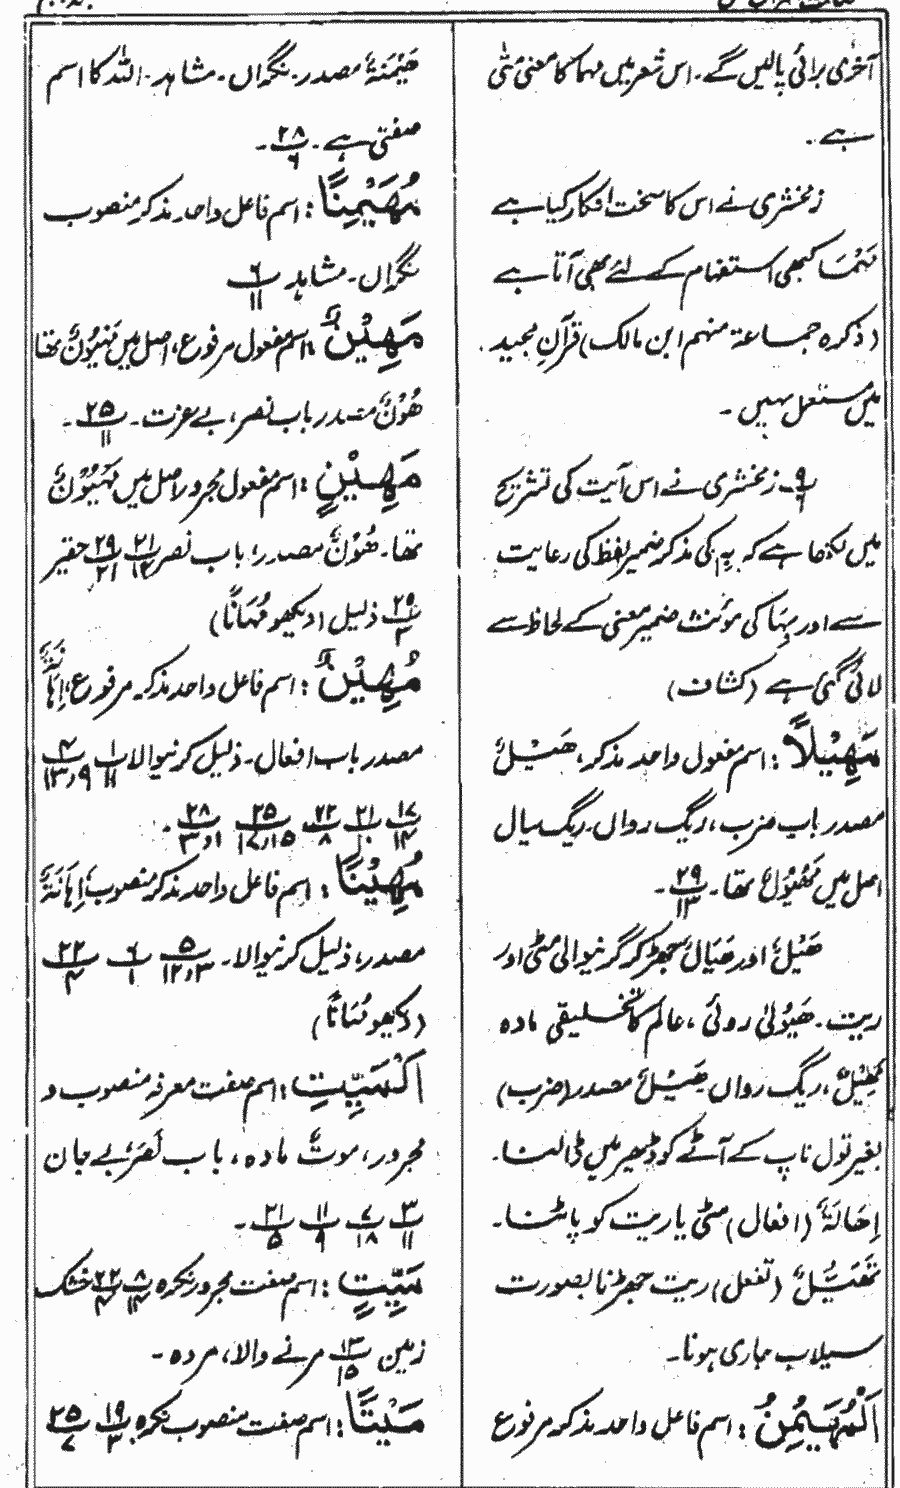 آخری برائی پالیں گے۔ اس شعر میں مہما کا معنی متٰی
ہے۔
زمخشری نے اس کا سخت انکار کیا ہے
مَہْمَا کبھی استفہام کے لئے بھی آتا ہے
(ذکرہ جماعۃ منہم ابن مالک) قرآنِ مجید
میں مستعمل نہیں۔
۹/۶ زمخشری نے اس آیت کی تشریح
میں لکھا ہے کہ بِہٖ کی مذکر ضمیر لفظ کی رعایت
سے اور بِہَا کی مؤنث ضمیر معنی کے لحاظ سے
لائی گئی ہے (کشاف)
مَہِیْلاً: اسم مفعول واحد مذکر، ھَیْلٌ
مصدر باب ضرب، ریگ رواں۔ ریگ سیال
اصل میں مَھْیُوْلٌ تھا۔ ۲۹/۱۳۔
ھَیْلٌ اور ھَیَالٌ جھڑ کر گرنیوالی مٹی اور
ریت۔ ھَیُوْلٰی روئی، عالم کا تخلیقی مادہ
مَھِیْلٌ، ریگ رواں ھَیْلٌ مصدر (ضرب)
بغیر تول ناپ کے آٹے کو ڈھیر میں ڈالنا۔
اِھَالَۃٌ (افعال) مٹی یا ریت کو پاٹنا۔
تَھَیُّلٌ (تفعل) ریت جھڑنا بصورت
سیلاب جاری ہونا۔
اَلْمُہَیْمِنُ: اسم فاعل واحد مذکر مرفوع
ھَیْمَنَۃٌ مصدر۔ نگراں۔ مشاہد۔ اللہ کا اسم
صفتی ہے۔ ۲۸/۶۔
مُہَیْمِنًا: اسم فاعل واحد مذکر منصوب
نگراں۔ مشاہد ۶/۱۱
مَہِیْنٌ: اسم مفعول مرفوع، اصل میں مَہْیُوْنٌ تھا
ھُوْنٌ مصدر باب نصر، بے عزت۔ ۲۵/۱۱۔
مَہِیْنٍ: اسم مفعول مجرور اصل میں مَہْیُوْنٌ
تھا۔ ھُوْنٌ مصدر، باب نصر ۲۱/۱۴ ۲۹/۲۱ حقیر
۲۹/۳ ذلیل (دیکھو مُہَانًا)
مُہِیْنٌ: اسم فاعل واحد مذکر مرفوع، اِہَانَۃٌ
مصدر باب افعال۔ ذلیل کرنیوالا ۱/۱۱ ۴/۹،۱۳
۱۷/۱۴ ۲۱/۱۰ ۲۲/۸ ۲۵/۱۵،۱۷ ۲۸/۱،۳۔
مُہِیْنًا: اسم فاعل واحد مذکر منصوب، اِہَانَۃٌ
مصدر، ذلیل کرنیوالا۔ ۵/۳،۱۲ ۶/۱ ۲۲/۴
(دکھو مُہَانًا)
اَلْمَیِّتِ: اسم صفت معرفہ منصوب و
مجرور، موتٌ مادہ، باب نَصَرَ، بے جان
۳/۱۱ ۷/۱۸ ۱۱/۹ ۲۱/۵۔
مَیِّتٍ: اسم صفت مجرور نکرہ ۸/۱۴ ۲۲/۱۴ خشک
زمین ۱۳/۱۵ مرنے والا، مردہ۔
مَیْتًا: اسم صفت منصوب نکرہ ۱۹/۳ ۲۵/۷